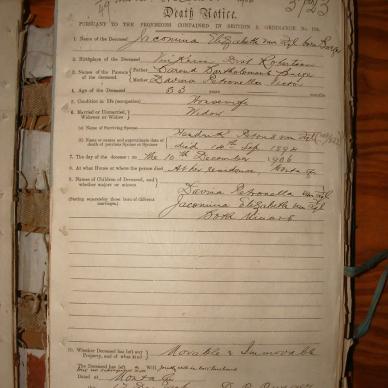 3/23
Death Notice.
PURSUANT TO THE PROVISIONS CONTAINED IN SECTION ORDINANCE, No. 104.
1. Name of the Deceased Jacomina Elizabeth van Zyl born
2. Birthplace of the Deceased Dist Robertson
3. Names of the Parents of the Deceased Father Barend Bartholomeus
Mother Davina Petronella
4. Age of the Deceased 53 years months
5. Condition in life (occupation) Housewife
6. Married or Unmarried, Widower or Widow Widow
(a) Name of Surviving Spouse
(b) Name or names and approximate date of death of previous Spouse or Spouses Hendrik Petrus van Zyl
died 10th Sep 1898
7. The day of the decease: on the 10th December 1906
8. At what House or where the person died At her residence, Montagu
9. Names of Children of Deceased, and whether major or minors
(Stating separately those born of different marriages.)
Davina Petronella van Zyl
Jacomina Elizabeth van Zyl
Both Minors
10. Whether Deceased has left any Property, and of what kind Movable & Immovable
The Deceased has left Will jointly with her husband
Dated at Montagu